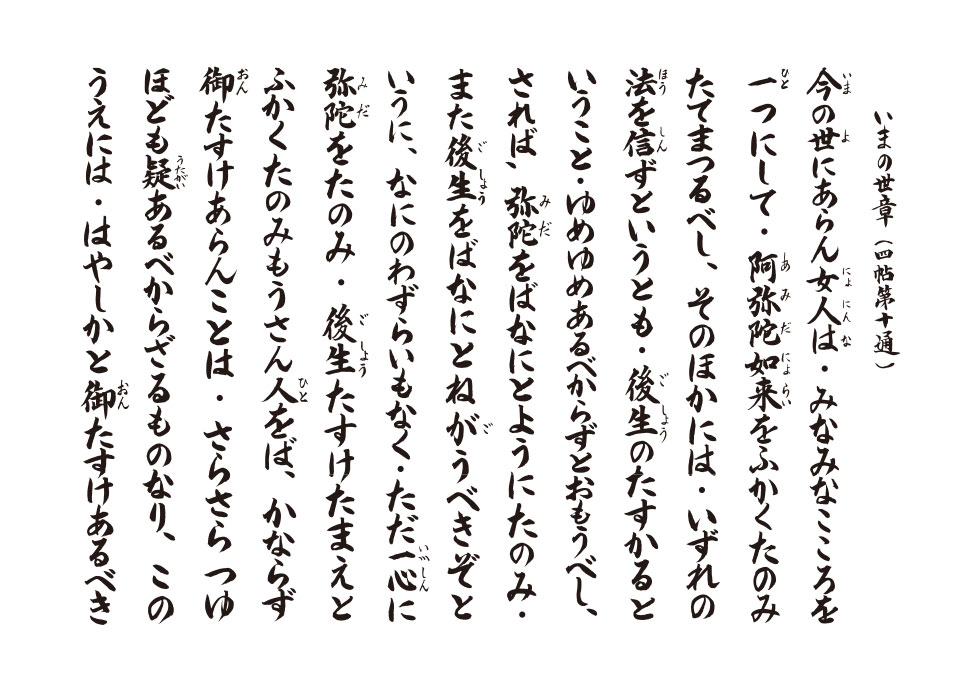 いまの世章（四帖第十通）
今の世にあらん女人は・みなみなこころを
一つにして・阿弥陀如来をふかくたのみ
たてまつるべし、そのほかには・いずれの
法を信ずというとも・後生のたすかると
いうこと・ゆめゆめあるべからずとおもうべし、
されば、弥陀をばなにとようにたのみ・
また後生をばなにとねがうべきぞと
いうに、なにのわずらいもなく・ただ一心に
弥陀をたのみ・後生たすけたまえと
ふかくたのみもうさん人をば、かならず
御たすけあらんことは・さらさらつゆ
ほども疑あるべからざるものなり、この
うえには・はやしかと御たすけあるべき